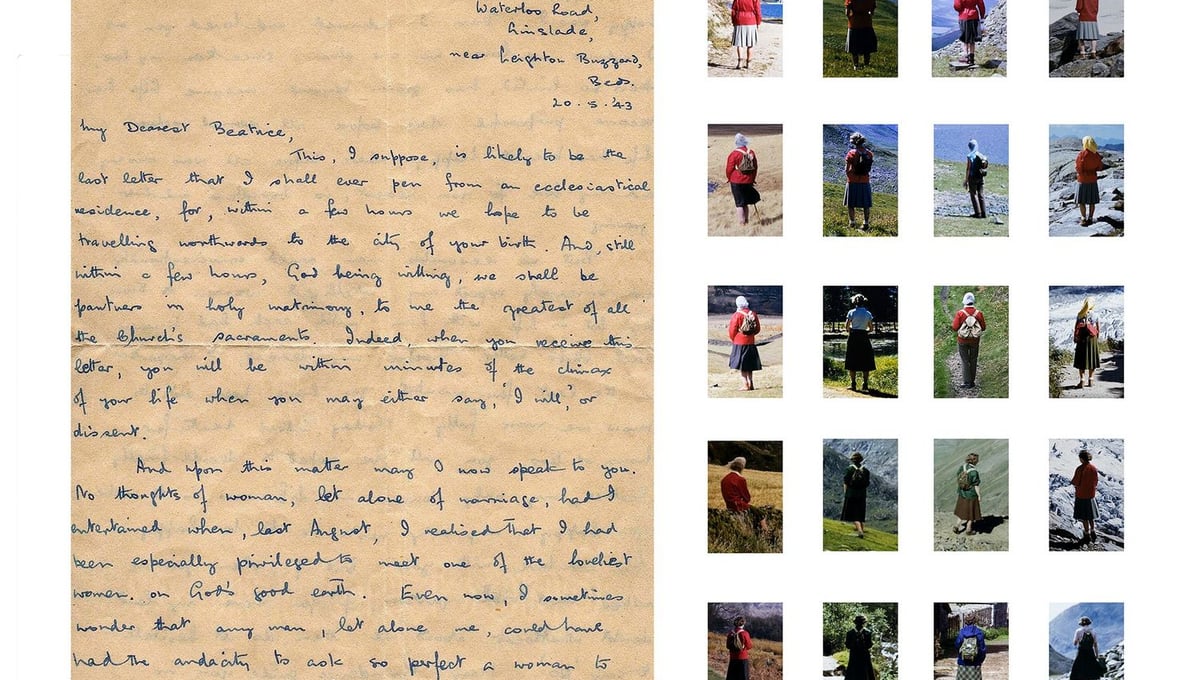 Waterloo Road,
Linslade,
near Leighton Buzzard,
Beds.
20.5.'43
My Dearest Beatrice,
This, I suppose, is likely to be the
last letter that I shall ever pen from an ecclesiastical
residence, for, within a few hours we hope to be
travelling northwards to the city of your birth. And, still
within a few hours, God being willing, we shall be
partners in holy matrimony, to me the greatest of all
the Church's sacraments. Indeed, when you receive this
letter, you will be within minutes of the climax
of your life when you may either say, 'I will,' or
dissent.
And upon this matter may I now speak to you.
No thoughts of woman, let alone of marriage, had I
entertained when, last August, I realised that I had
been especially privileged to meet one of the loveliest
women on God's good earth. Even now, I sometimes
wonder that any man, let alone me, could have
had the audacity to ask so perfect a woman to